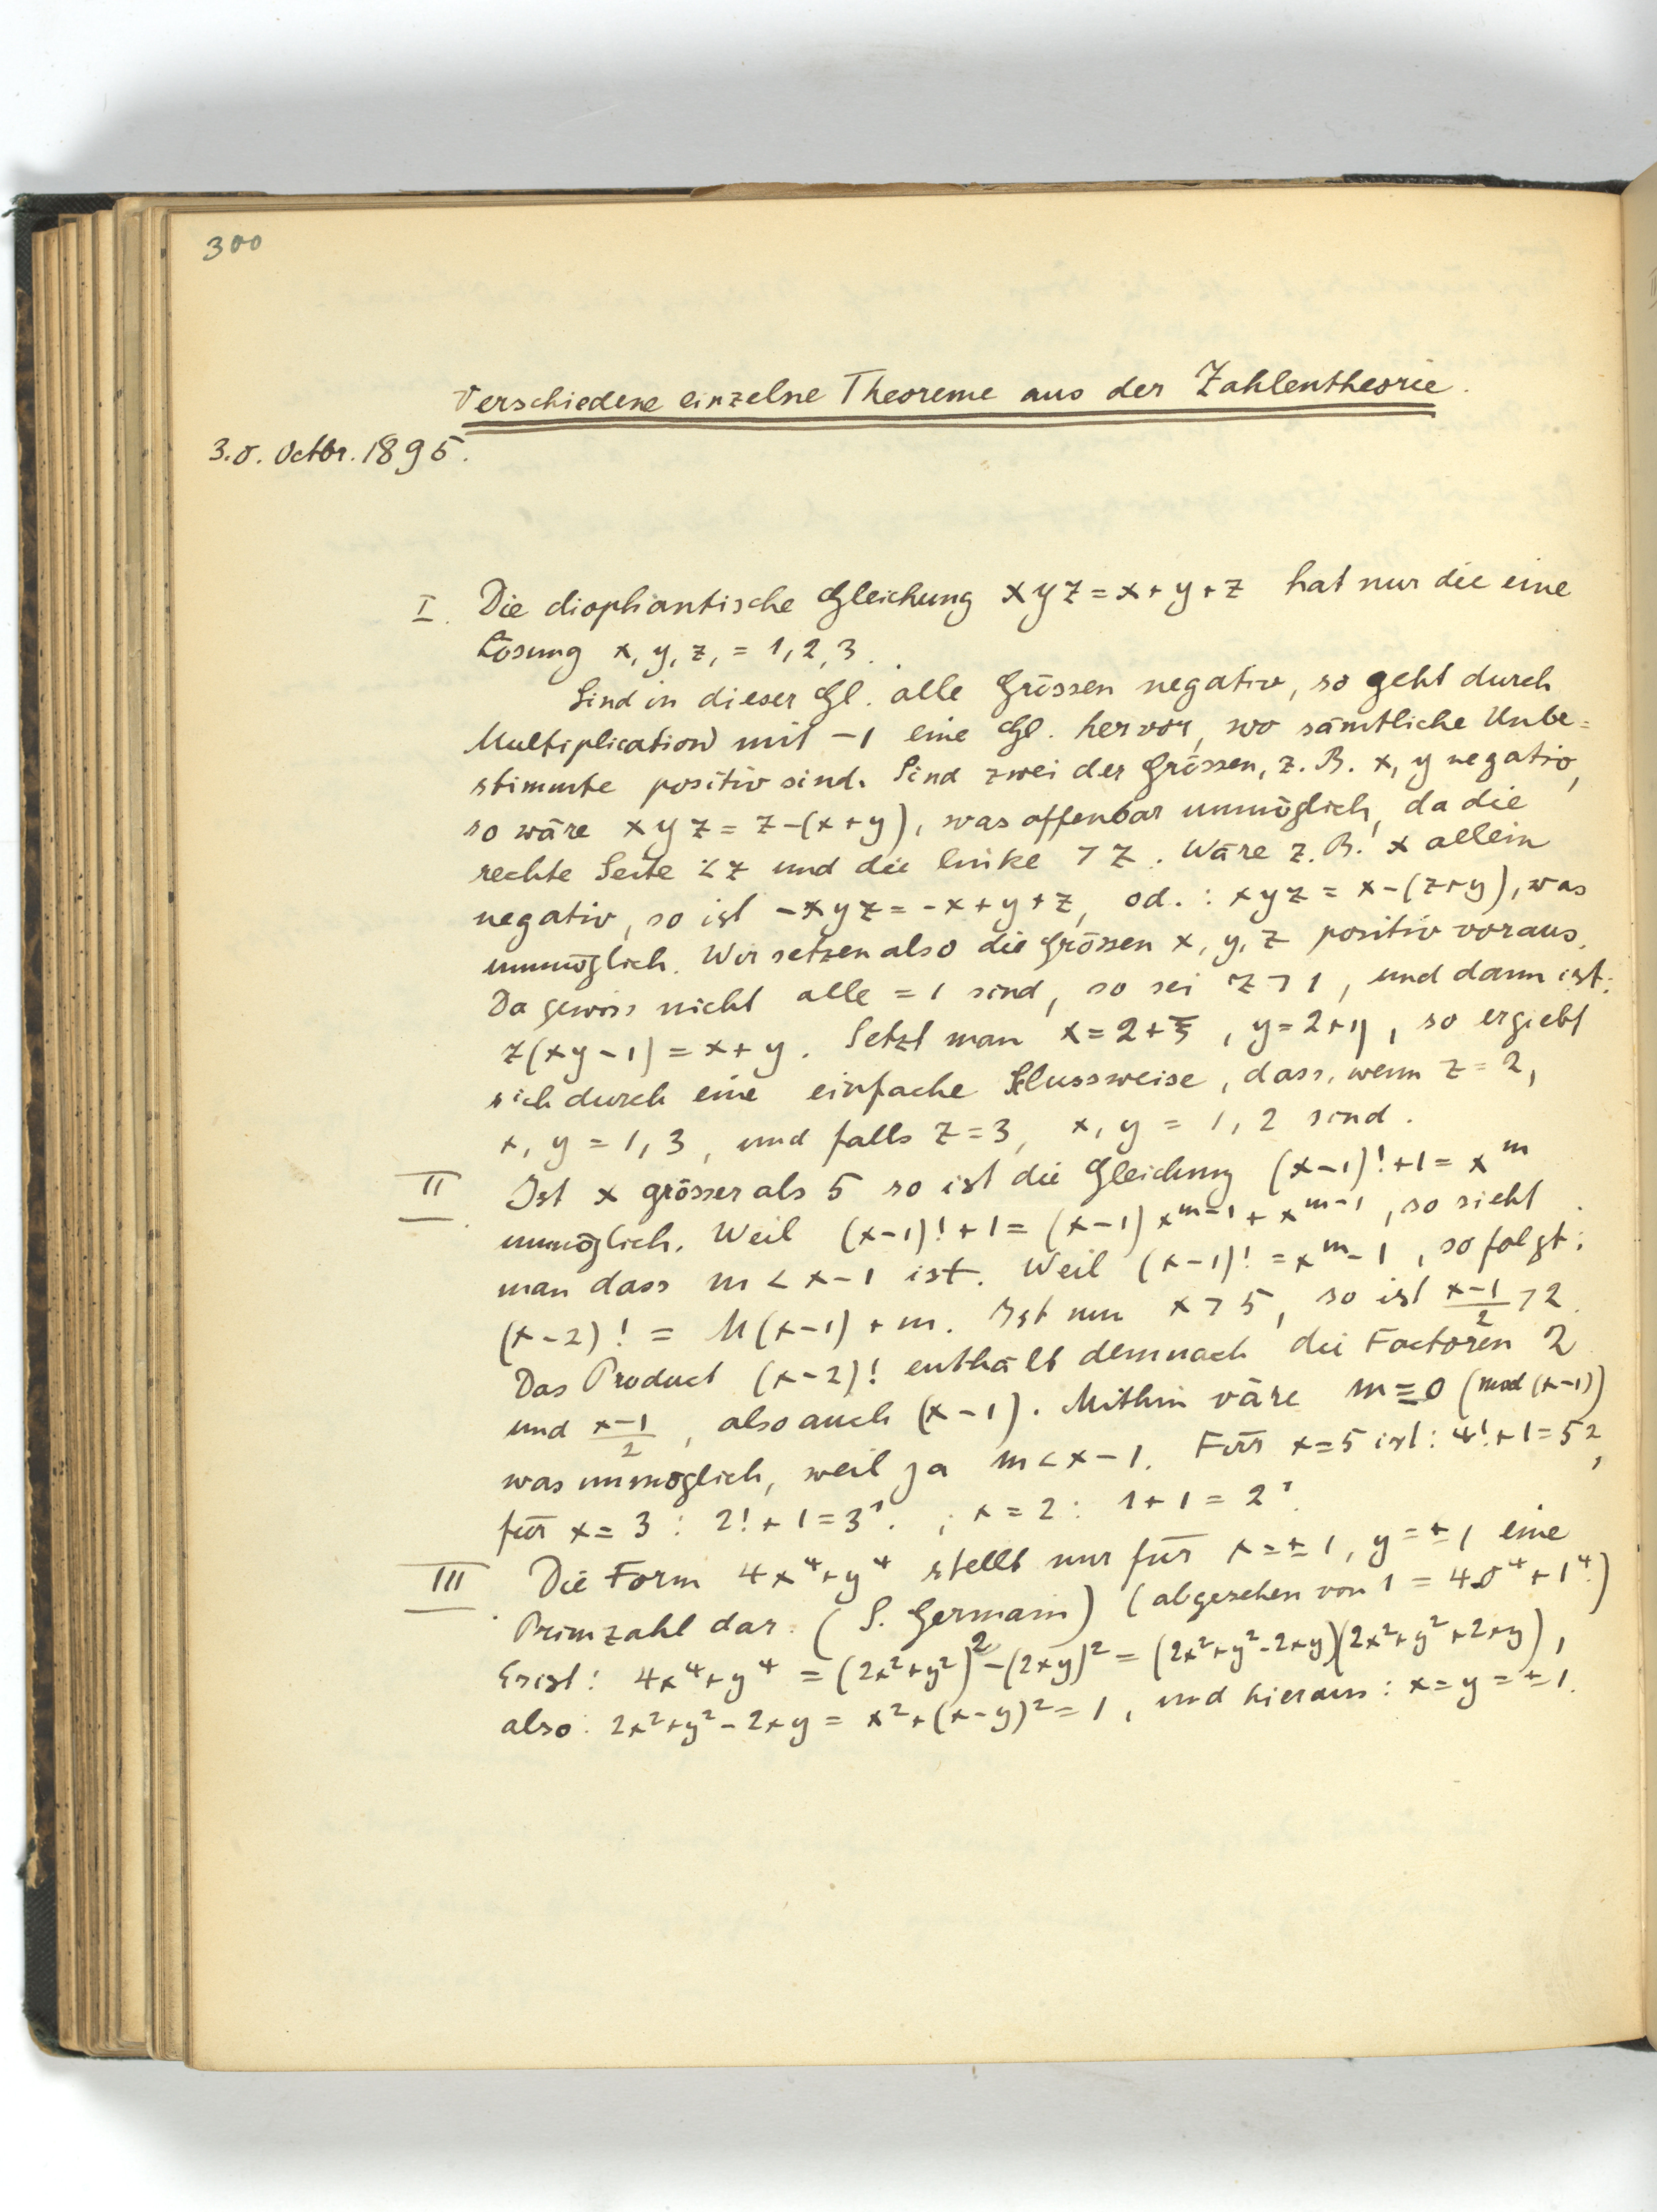 300
Verschiedene einzelne Theoreme aus der Zahlentheorie.
30. Octbr. 1895.
I. Die diophantische Gleichung xyz = x + y + z hat nur die eine
Lösung x, y, z, = 1, 2, 3.
Sind in dieser Gl. alle Grössen negativ, so geht durch
Multiplication mit -1 eine Gl. hervor, wo sämtliche Unbe=
stimmte positiv sind. Sind zwei der Grössen, z. B. x, y negativ,
so wäre xyz = z-(x+y), was offenbar unmöglich, da die
rechte Seite < z und die linke > z. Wäre z. B. x allein
negativ, so ist -xyz = -x + y + z, od. : xyz = x-(z+y), was
unmöglich. Wir setzen also die Grössen x, y, z positiv voraus.
Da gewiss nicht alle = 1 sind, so sei z > 1, und dann ist:
z(xy-1) = x + y. Setzt man x = 2 + ξ, y = 2 + η, so ergiebt
sich durch eine einfache Schlussweise, dass, wenn z = 2,
x, y = 1, 3, und falls z = 3, x, y = 1, 2 sind.
II. Ist x grösser als 5 so ist die Gleichung (x-1)! + 1 = x^m
unmöglich. Weil (x-1)! + 1 = (x-1) x^{m-1} + x^{m-1}, so sieht
man dass m < x-1 ist. Weil (x-1)! = x^m - 1, so folgt:
(x-2)! = M(x-1) + m. Ist nun x > 5, so ist \frac{x-1}{2} > 2.
Das Product (x-2)! enthält demnach die Factoren 2
und \frac{x-1}{2}, also auch (x-1). Mithin väre m ≡ 0 (mod (x-1))
was unmöglich, weil ja m < x-1. Für x = 5 ist: 4! + 1 = 5^2,
für x = 3 : 2! + 1 = 3^1. ; x = 2 : 1 + 1 = 2^1.
III. Die Form 4x^4 + y^4 stellt nur für x = ±1, y = ±1 eine
Primzahl dar. (S. Germain) (abgesehen von 1 = 4.0^4 + 1^4.)
Es ist: 4x^4 + y^4 = (2x^2 + y^2)^2 - (2xy)^2 = (2x^2 + y^2 - 2xy)(2x^2 + y^2 + 2xy),
also: 2x^2 + y^2 - 2xy = x^2 + (x-y)^2 = 1, und hieraus: x = y = ±1.